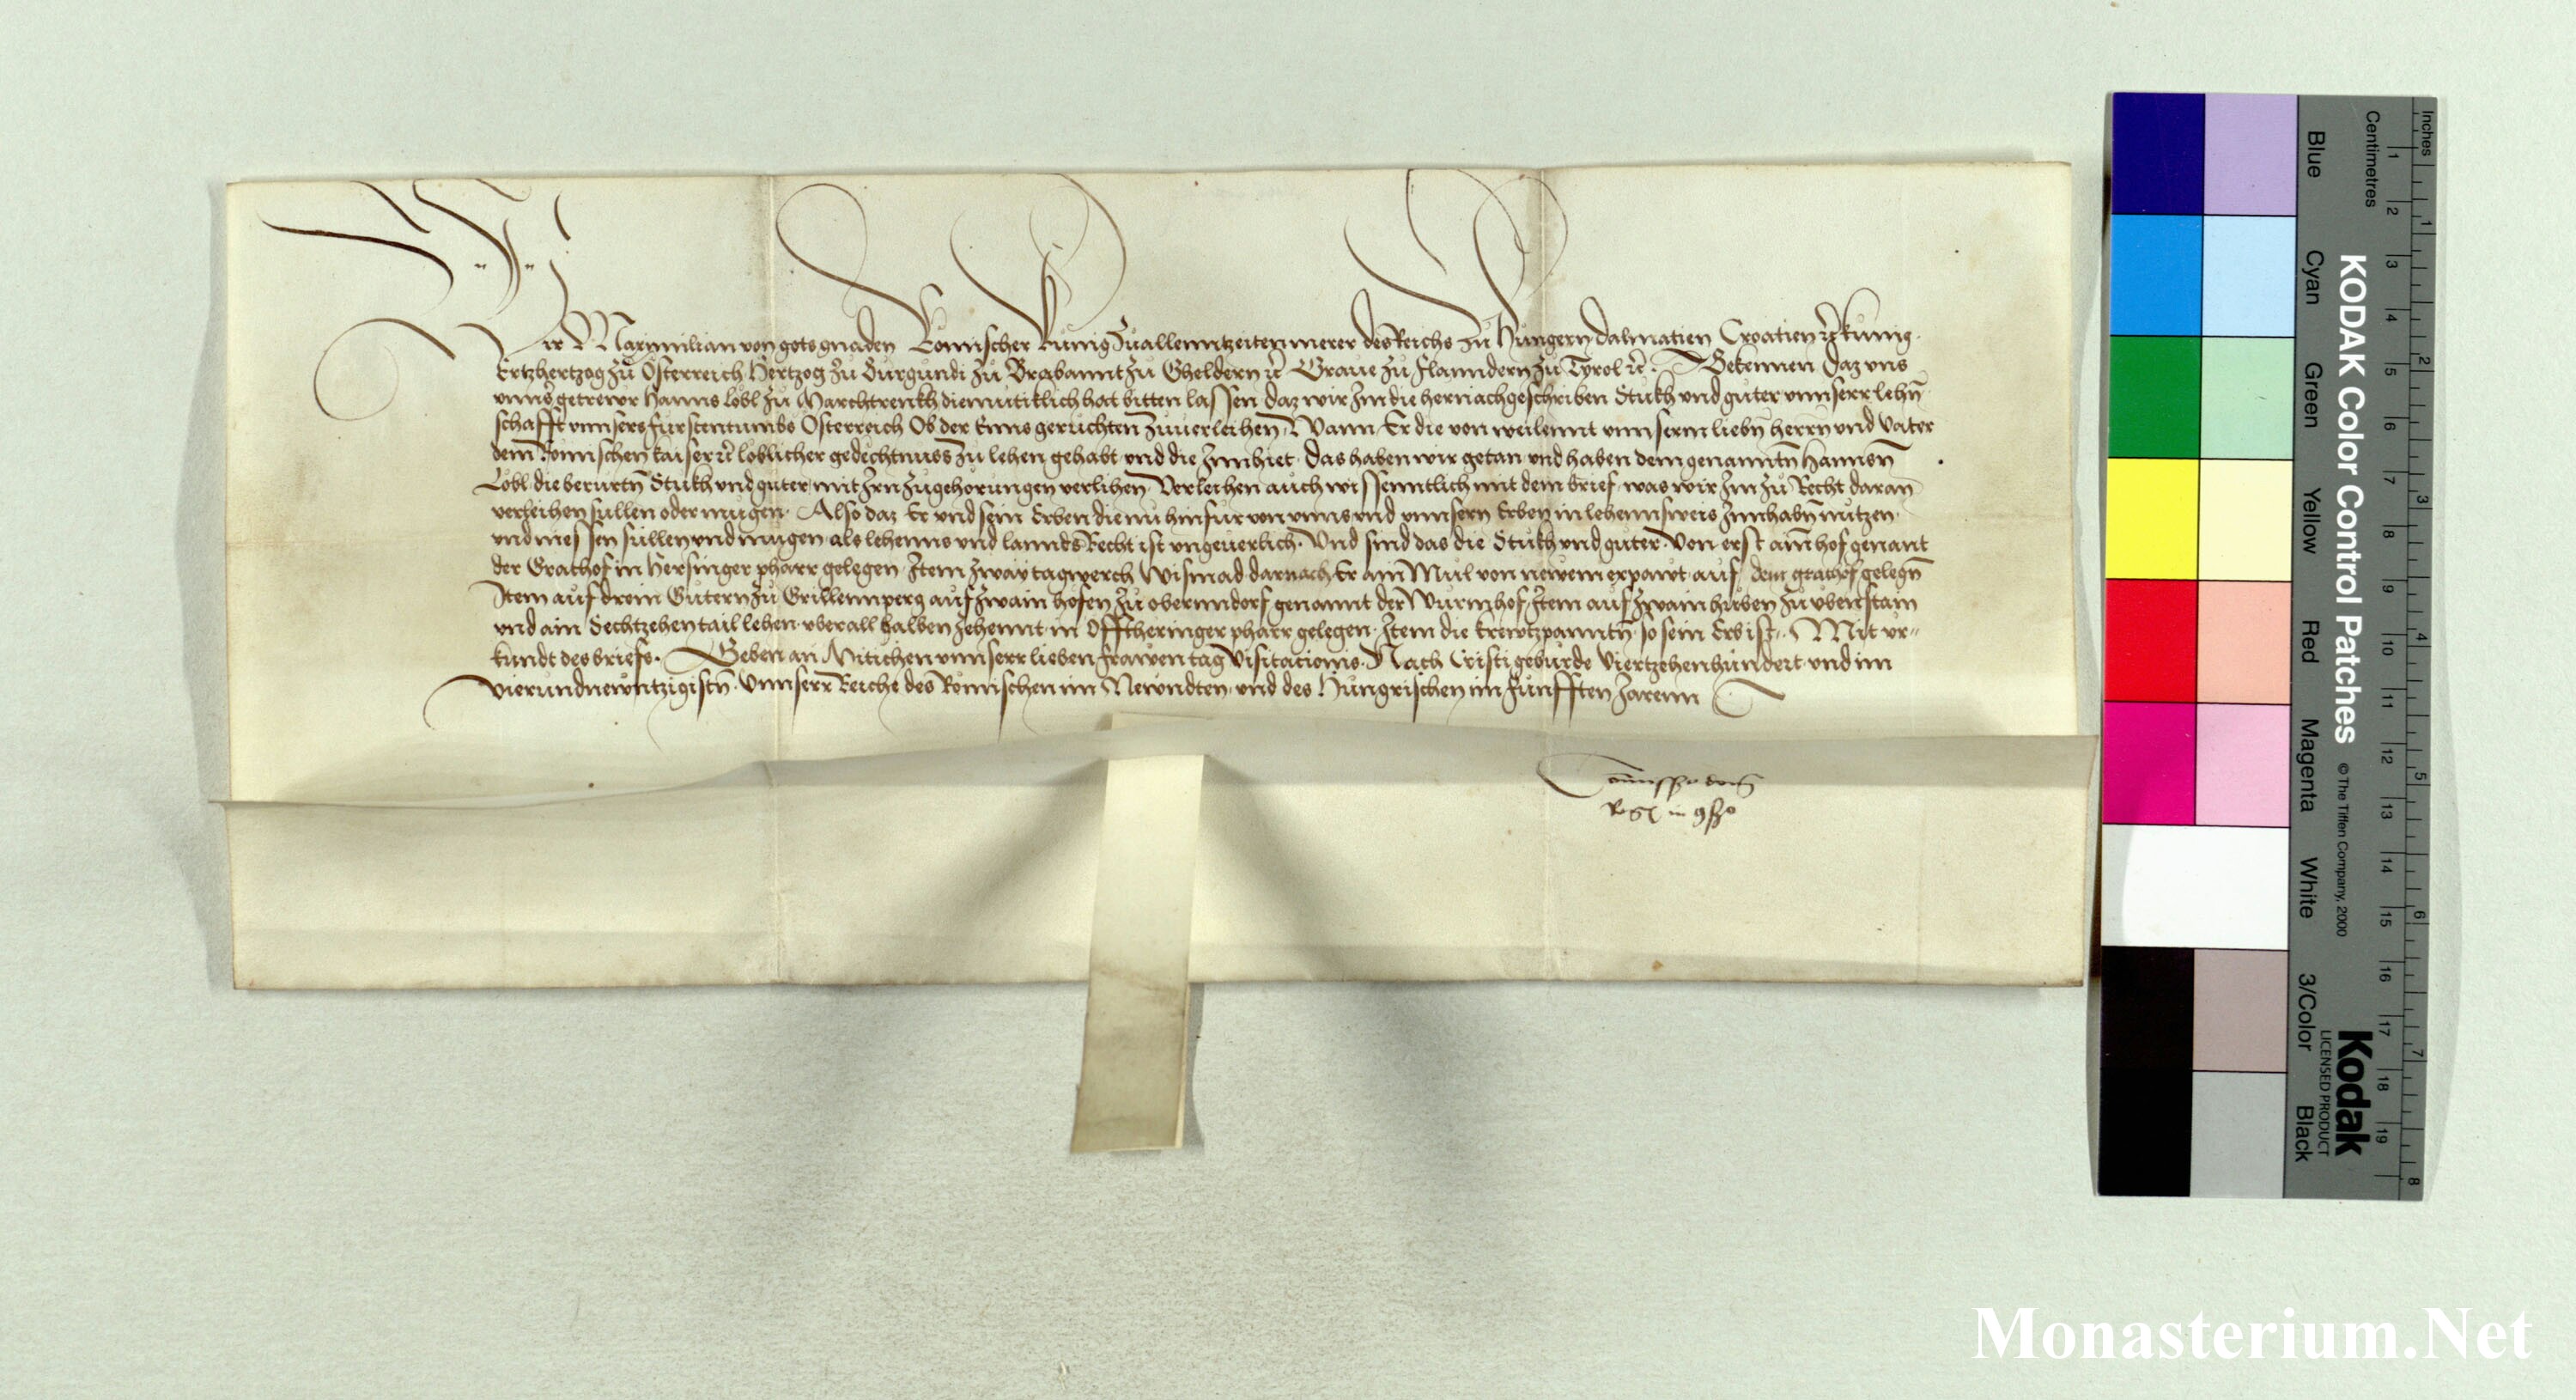 Wir Maximilian von gots gnaden Romischer kunig zu allenntzeiten merer des Reichs zu Hungern Dalmatien Croatien ꝛc kunig
Ertzhertzog zu Osterreich Hertzog zu Burgundi zu Brabannt zu Gheldern ꝛc Graue zu Flanndern zu Tyrol ꝛc Bekennen daz vns
vnnser getrewr Hanns Löbl zu Marchtrenkh diemutiklich hat bitten lassen daz wir Im die hernachgeschriben Stukh vnd guter vnnserr lehn
schafft vnnsers furstentumbs Osterreich Ob der Enns geruchten zuuerleihen Wann Er die von weilennt vnnserm liebn herrn vnd Vater
dem Romischen kaiser ꝛc loblicher gedechtnuss zu lehen gehabt vnd die Innhiet Das haben wir getan vnd haben dem genanntn Hannsn
Löbl die berurtn Stukh vnd guter mit Irn zugehorungen verlihen Verleihen auch wissenntlich mit dem brief was wir Im zu Recht daran
verleihen sullen oder mugen Also daz Er vnd sein Erben die nu hinfur von vnns vnd vnnsern Erben in lehennsweis Innhabn nutzen
vnd niessen sullen vnd mugen als lehenns vnd lannds Recht ist vngeuerlich Vnd sind das die Stukh vnd guter Von erst ain hof genant
der Grathof in Hersinger pharr gelegen Item zway tagwerch Wismad darnach Er ain Mul von newem erpawt auf dem grathof gelegn
Item auf drein Gutern zu Grillennperg auf zwain hofen zu obernndorf genannt der Wurmhof Item auf zwain huben zu vbenstain
vnd ain Sechtzehentail lehen vberall halben zehennt in Offtheringer pharr gelegen Item die krewtzpanntn so sein Erb ist Mit vr=
kundt des briefs Geben an Mitichen vnnserr lieben frawen tag Visitacionis Nach Cristi geburde Viertzehenhundert vnd im
Vierundnewntzigistn Vnnserr Reiche des Romischen im Newndten vnd des Hungrischen im Funfften Jarenn
Commissio domini
Regis in consilio
KODAK Color Control Patches
© The Tiffen Company, 2000
Kodak
LICENSED PRODUCT
Blue Cyan Green Yellow Red Magenta White 3/Color Black
Inches 1 2 3 4 5 6 7 8
Centimetres 1 2 3 4 5 6 7 8 9 10 11 12 13 14 15 16 17 18 19
Monasterium.Net